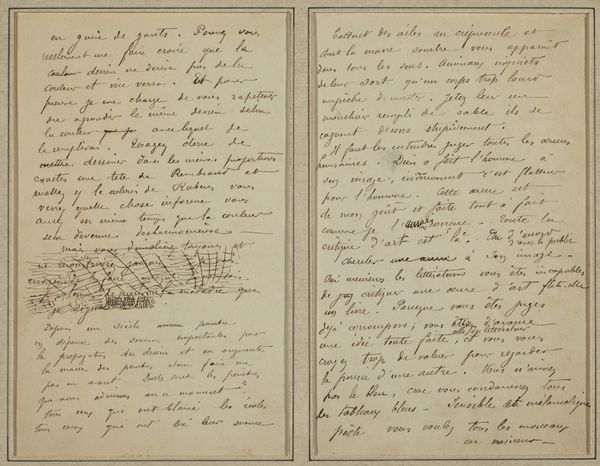 en guise de gants. Pouvez vous
réellement me faire croire que la
couleur dessin ne dérive pas de la
couleur et vice versa. Et pour
preuve je me charge de vous rapetisser
ou agrandir le même dessin selon
la couleur avec laquelle je
le remplirai. Essayez donc de
mettre dessiner dans les mêmes proportions
exactes une tête de Rembrandt et
mettez y le coloris de Rubens vous
verrez quelle chose informe vous
aurez en même temps que la couleur
sera devenue désharmonieuse —
mais vous
Depuis un siècle
on dépense des sommes importantes pour
la propagation du dessin et on augmente
la masse des peintres sans faire un
pas en avant. Quels sont les peintres
que nous admirons en ce moment?
tous ceux qui ont blamé les écoles
tous ceux qui ont tiré leur science
battant des ailes au crépuscule et
dont la masse sombre vous apparait
dans tous les sens. Animaux inquiets
de leur sort qu'un corps trop lourd
empêche de monter. Jetez leur un
mouchoir rempli de sable ils se
cognent dessus stupidement.
Il faut les entendre juger toutes les œuvres
humaines. Dieu a fait l'homme à
son image, évidemment c'est flatteur
pour l'homme. Cette œuvre est
de mon goût et faite tout à fait
comme je l'aurais conçue. Toute la
critique d'art est là. Être d'accord
avec le public
Chercher une œuvre à son image —
Oui messieurs les littérateurs vous êtes incapables
de critiquer une œuvre d'art fut-elle
un livre. Parceque vous êtes juges
déjà corrompus; vous avez d'avance
une idée toute faite celle du littérateur et vous vous
croyez trop de valeur pour regarder
la pensée d'une autre. Vous n'aimez
pas le bleu, car vous condamnez tous
les tableaux bleus — Sensible et mélancolique
poète vous voulez tous les morceaux
en mineur —